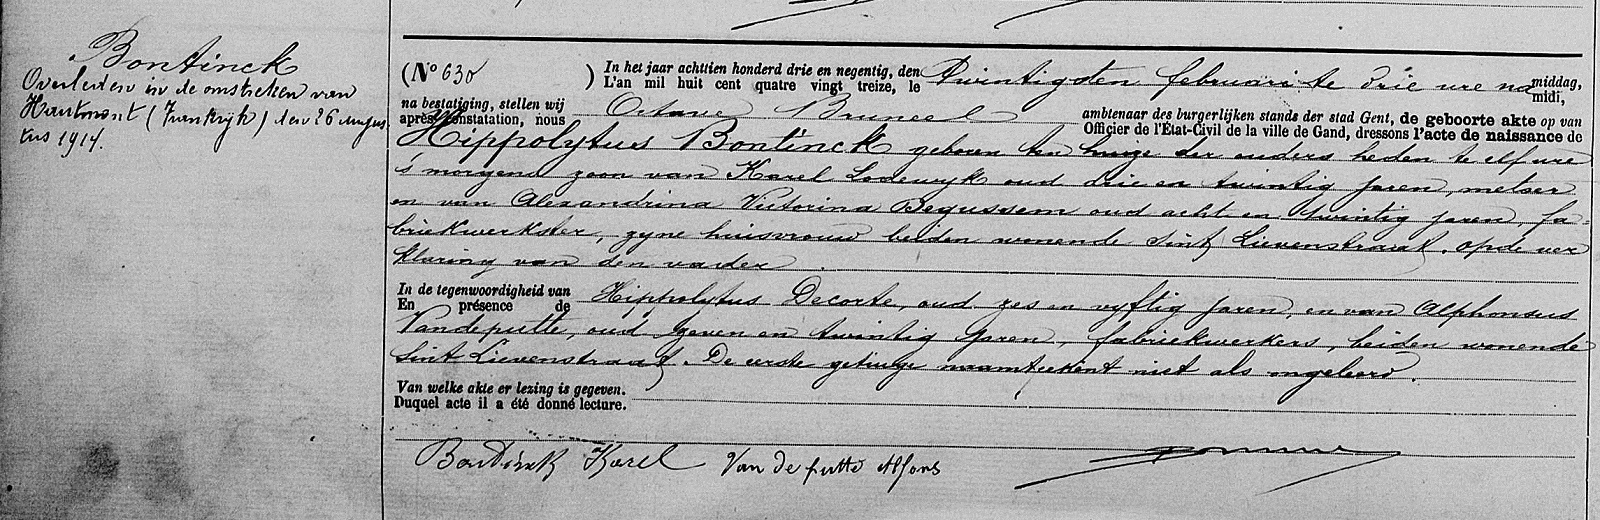 Bontinck
Overleden in de omstreken van
Hautmont (Frankrijk) den 26 Augus
tus 1914.
(No 630)
In het jaar achttien honderd drie en negentig, den
L'an mil huit cent quatre vingt treize, le
Twintigsten februari te drie ure na
middag,
midi,
na bestatiging, stellen wij
après constatation, nous
Octave Bruneel
ambtenaar des burgerlijken stands der stad Gent, de geboorte akte op van
Officier de l'État-Civil de la ville de Gand, dressons l'acte de naissance de
Hippolytus Bontinck geboren ten huize der ouders heden te elf ure
's morgens zoon van Karel Lodewyk oud drie en twintig jaren, metser
en van Alexandrina Victorina Begussem oud acht en twintig jaren, fa-
briekwerkster, zyne huisvrouw beiden wonende Sint Lievenstraat. op de ver
klaring van den vader
In de tegenwoordigheid van
En présence de
Hippolytus Decorte, oud zes en vyftig jaren, en van Alphonsus
Vandeputte, oud zeven en twintig jaren, fabriekwerkers, beiden wonende
Sint Lievenstraat. De eerste getuige naamteekent niet als ongeleerd.
Van welke akte er lezing is gegeven.
Duquel acte il a été donné lecture.
Bontinck Karel Van de putte Alfons